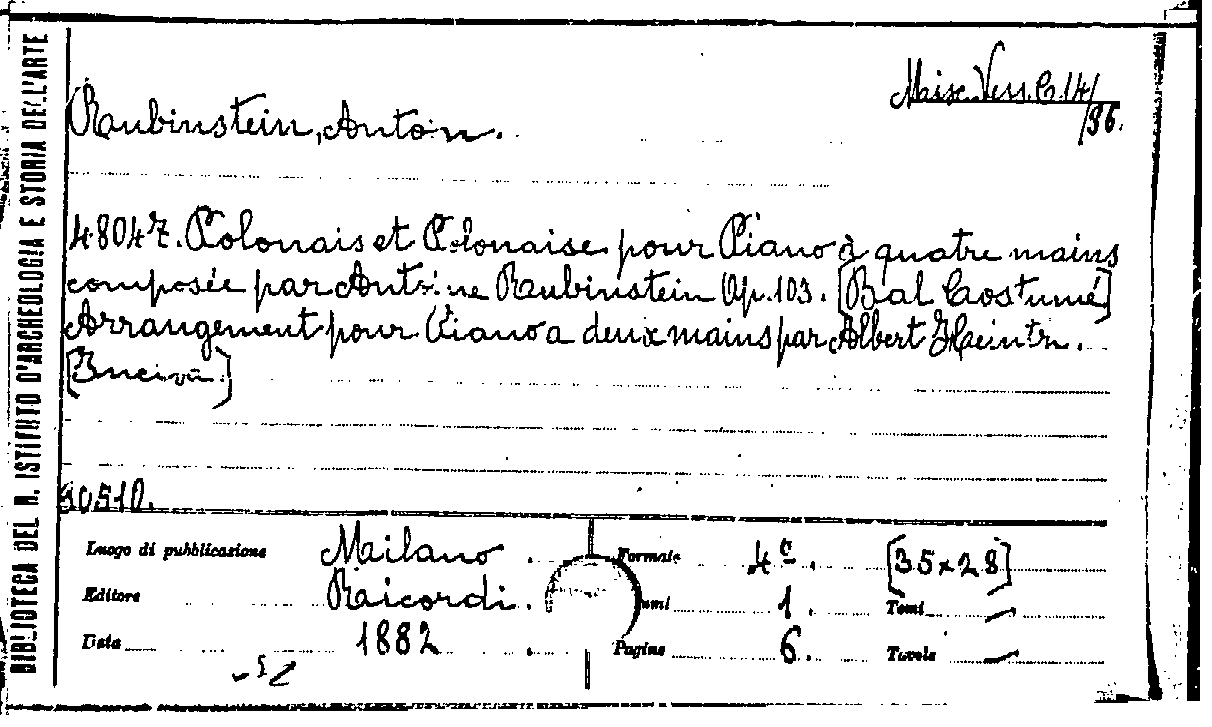 BIBLIOTECA DEL R. ISTITUTO D'ARCHEOLOGIA E STORIA DELL'ARTE
Misc. Vess. C. 14/
/96.
Rubinstein, Anton.
48047. Polonais et Polonaise pour Piano à quatre mains
composée par Antoine Rubinstein Op. 103. [Bal Costumé]
Arrangement pour Piano a deux mains par Albert Heintz.
[Inciso]
90510.
Luogo di pubblicazione Milano. Formato 4º. [35×28]
Editore Ricordi. umi 1. Tomi —
Data 1882. Pagine 6. Tavole —